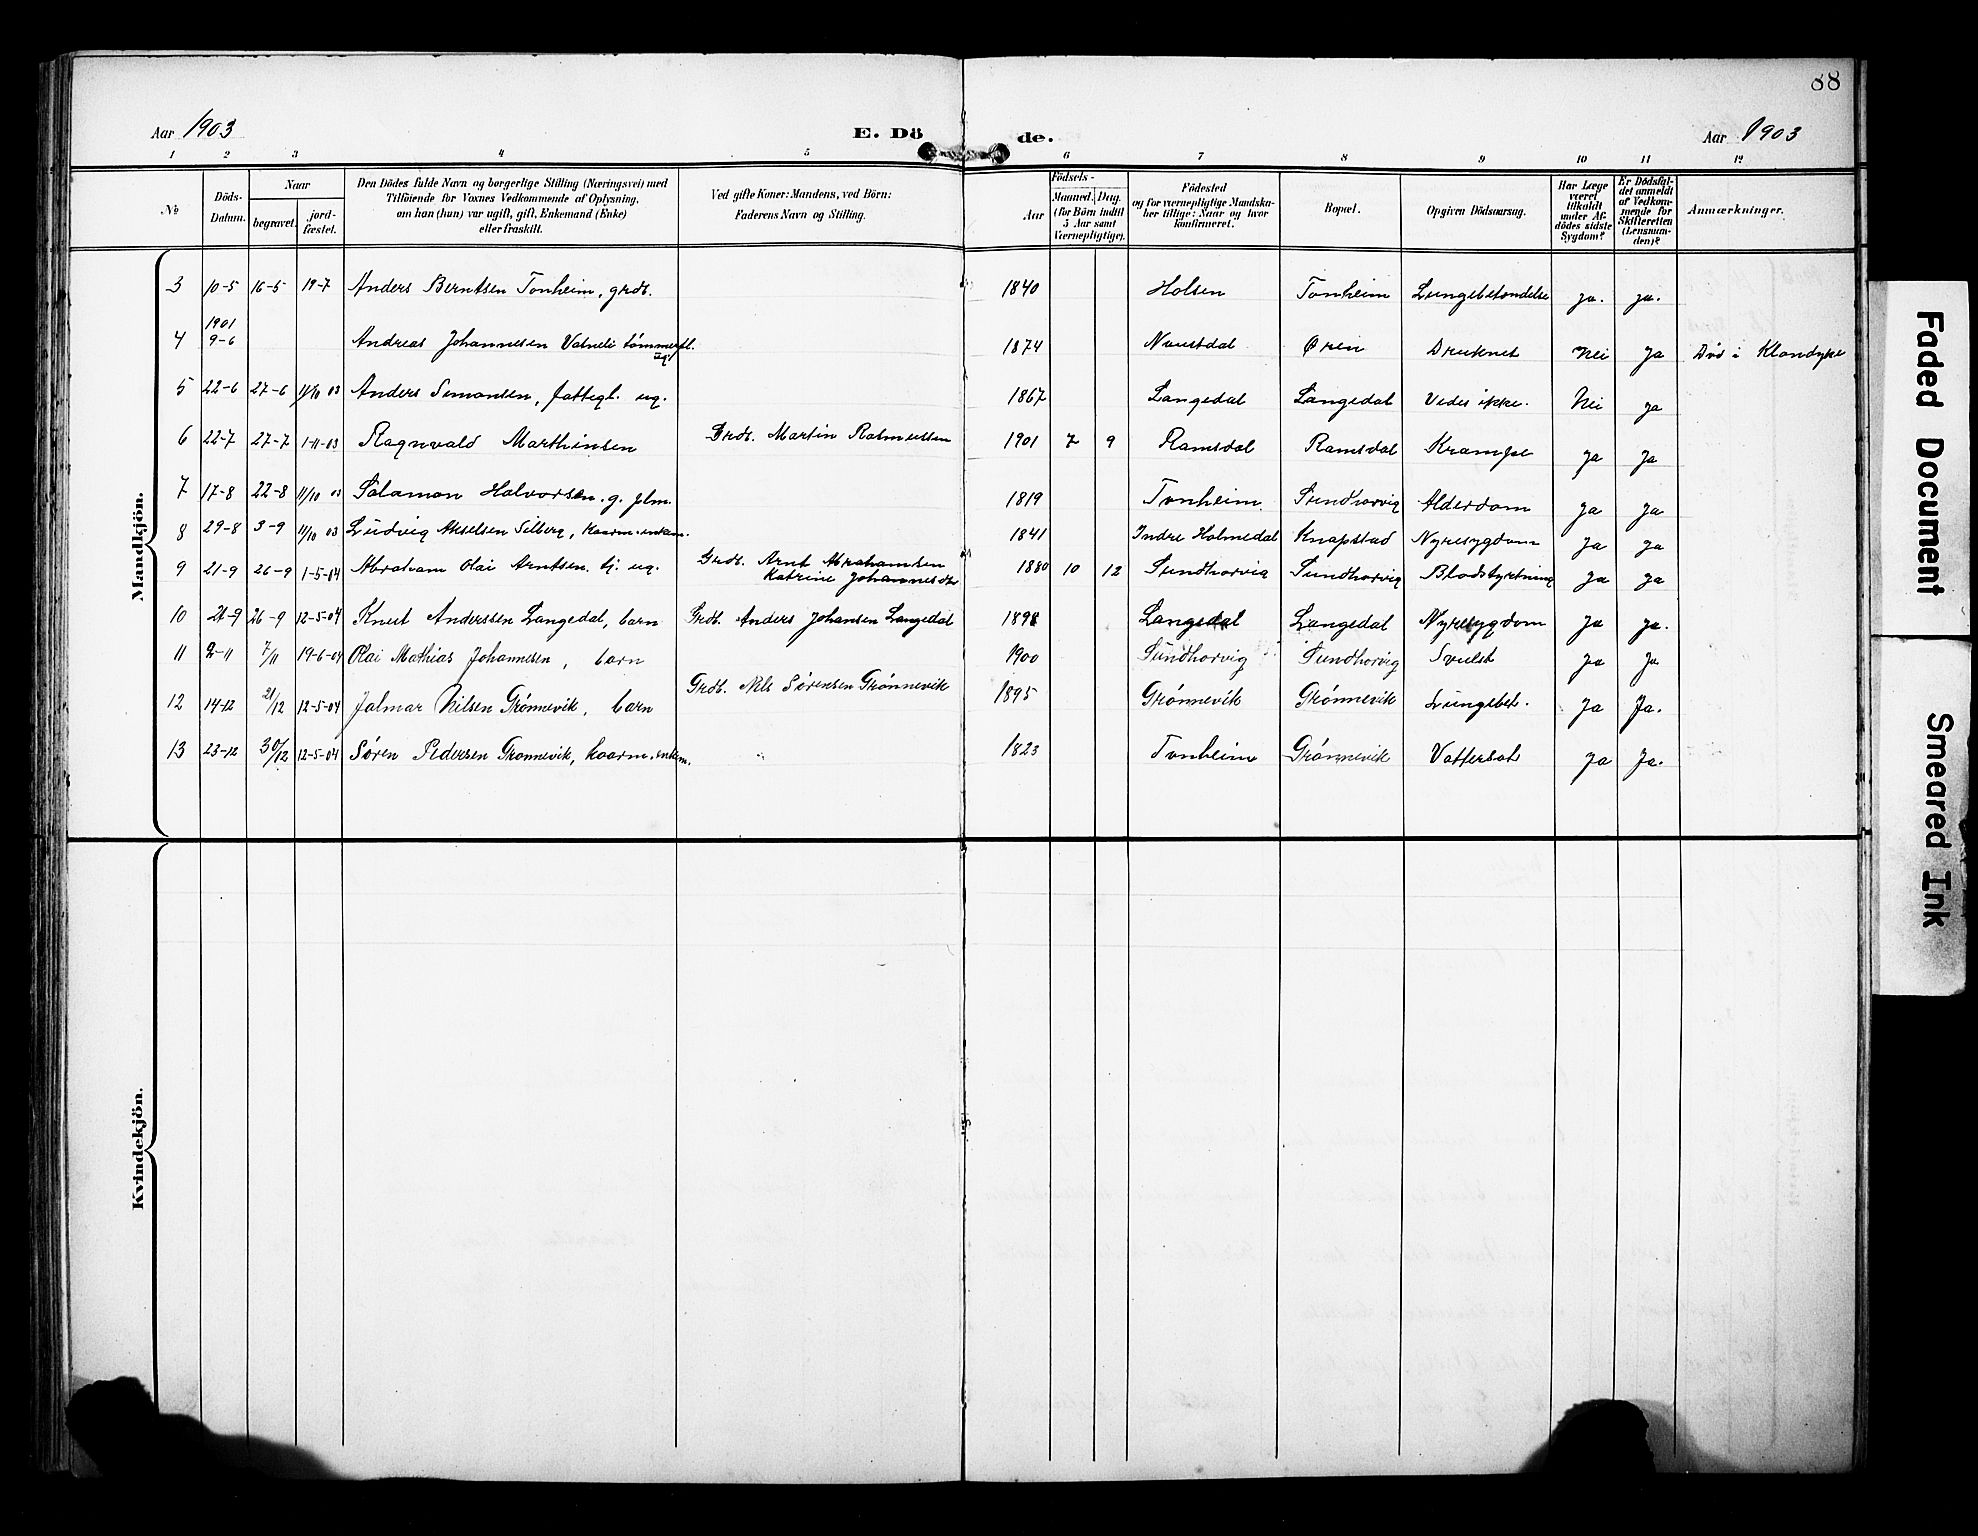 88
Aar 1903 E. Dö de. Aar 1903
1 2 3 4 5 6 7 8 9 10 11 12
№
Döds-Datum.
Naar
begravet. jord-fæstet.
Den Dödes fulde Navn og borgerlige Stilling (Næringsvei) med
Tilföiende for Voxnes Vedkommende af Oplysning,
om han (hun) var ugift, gift, Enkemand (Enke)
eller fraskilt.
Ved gifte Koner: Mandens, ved Börn:
Faderens Navn og Stilling.
Födsels-
Aar Maaned. Dag.
(for Börn indtil
5 Aar samt
Værnepligtige).
Födested
og for værnepligtige Mandska-
ber tillige: Naar og hvor
konfirmeret.
Bopæl.
Opgiven Dödsaarsag.
Har Læge
været
tilkaldt
under Af-
dödes sidste
Sygdom?
Er Dödsfal-
det anmeldt
af Vedkom-
mende for
Skifteretten
(Lensman-
den)?
Anmærkninger.
Mandkjön.
3 10-5 16-5 19-7 Anders Berntsen Tonheim, grdb. 1840 Holsen Tonheim Lungebetændelse ja. ja.
4 1901 9-6 Andreas Johannesen Vatneli tømmerfl. ug. 1874 Naustdal Øren Druknet Nei ja Død i Klondyke
5 22-6 27-6 11/10 03 Anders Simonsen, fattigl. ug. 1867 Langedal Langedal Vides ikke. Nei ja
6 22-7 27-7 1-11-03 Ragnvald Marthinsen Grdb. Martin Rasmussen 1901 7 9 Ramsdal Ramsdal Krampe ja ja
7 17-8 22-8 11/10 03 Salamon Halvorsen. g. plm. 1819 Tonheim Sundhorvig Alderdom ja ja
8 29-8 3-9 11/10 03 Ludvig Akselsen Silberg, kaarm. enkem. 1841 Indre Holmedal Knapstad Nyresygdom ja ja
9 21-9 26-9 1-5-04 Abraham Olai Arntsen tj. ug. Grdb. Arnt Abrahamsen
Katrine Johannesdtr 1880 10 12 Sundhorvig Sundhorvig Blodstyrtning ja ja
10 21-9 26-9 12-5-04 Knut Anderssen Langedal, barn Grdb. Anders Johansen Langedal 1898 Langedal Langedal Nyresygdom ja ja.
11 2-11 7/11 19-6-04 Olai Mathias Johannesen, barn 1900 Sundhorvig Sundhorvig Svulst ja ja
12 14-12 21/12 12-5-04 Jalmar Nilsen Grønnevik, barn Grdb. Nils Sørensen Grønnevik 1895 Grønnevik Grønnevik Lungebet. ja Ja.
13 23-12 30/12 12-5-04 Søren Pedersen Grønnevik, kaarm. enkem. 1823 Tonheim Grønnevik Vattersot ja Ja.
Kvindekjön.
Faded Document
Smeared Ink